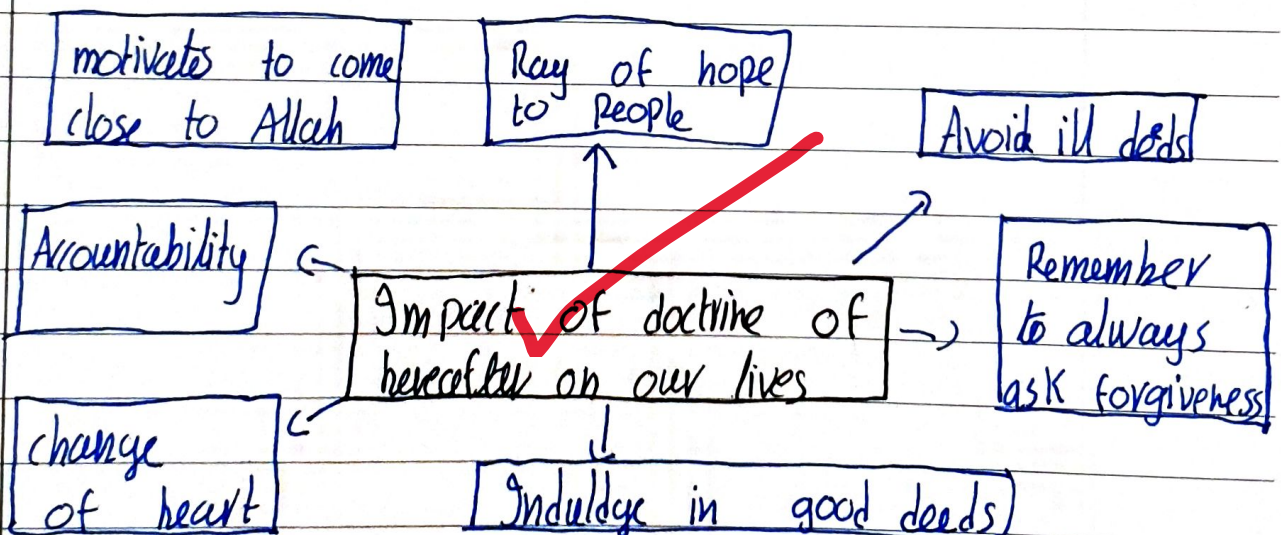 motivates to come
close to Allah
Ray of hope
to People
Avoid ill deeds
Accountability
Impact of doctrine of
hereafter on our lives
Remember
to always
ask forgiveness
change
of heart
Induldge in good deeds